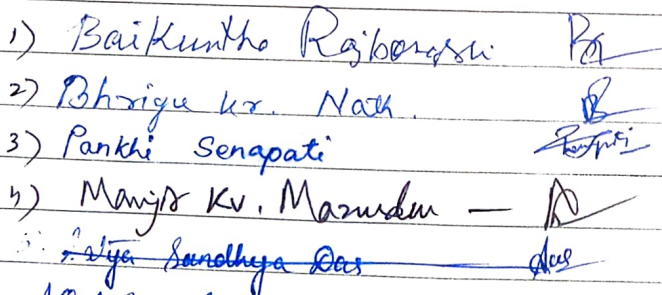 1) Baikuntha Rajbongshi
2) Bhrigu kr. Nath.
3) Pankhi Senapati
4) Kr. Mazumdar —
Sandhya Das Das